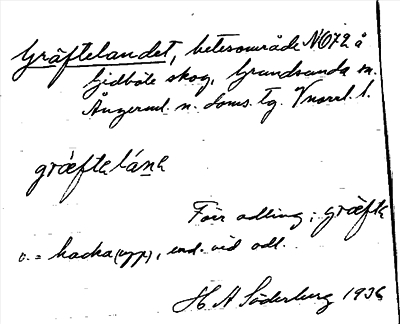 Gräftelandet, betesområde NO72 å
Lidböle skog, Grundsunda sn.
Ångerml. n. doms. tg. Vnorrl. l.
græftelánẹ
Förr odling; græfte
v. = hacka (upp), end. vid odl.
H A Söderberg 1936